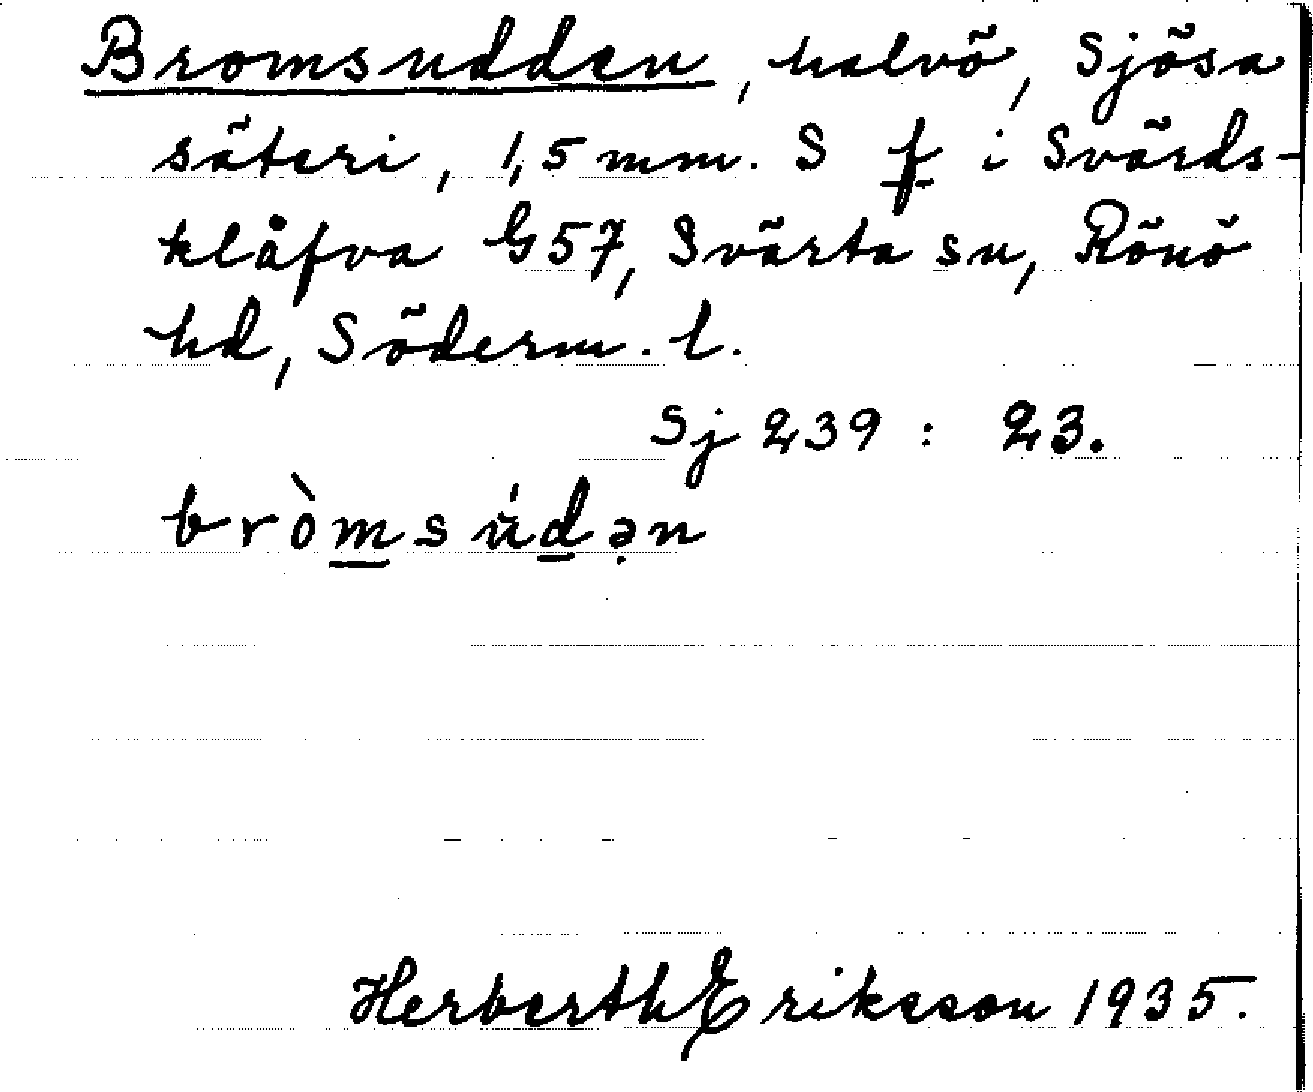 Bromsudden, halvö, Sjösa
säteri, 1,5 mm. S f i Svärds-
klåfva G57, Svärta sn, Rönö
hd, Söderm. l.
Sj 239 : 23.
bròmsúdə̣n
Herberth Eriksson 1935.